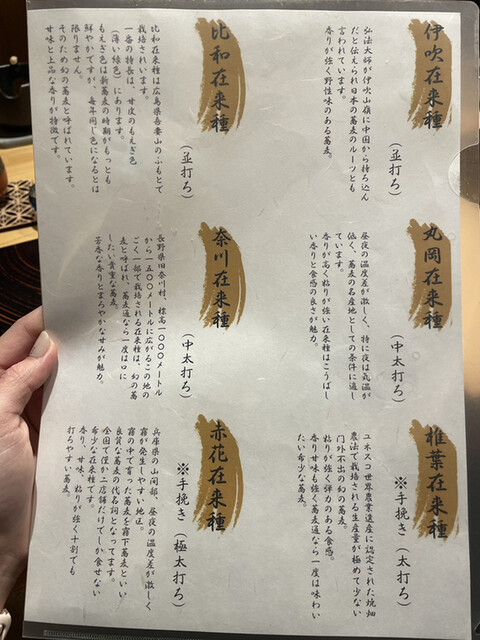 伊吹在来種
（並打ち）
弘法大師が伊吹山嶺に中国から持ち込ん
だと伝えられ日本の蕎麦のルーツとも
言われています。
香りが強く野性味のある蕎麦。
比和在来種
（並打ち）
比和在来種は広島県吾妻山のふもとで
栽培されいます。
一番の特長は、甘皮のもえぎ色
（薄い緑色）にあります。
もえぎ色は新蕎麦の時期がもっとも
鮮やかですが、毎年同じ色になるとは
限りません。
そのため幻の蕎麦と呼ばれています。
甘味と上品な香りが特徴です。
丸岡在来種
（中太打ち）
昼夜の温度差が激しく、特に夜は気温が
低く、蕎麦の名産地としての条件に適し
ています。
香りが高く粘りが強い在来種はこうばし
い香りと食感の良さが魅力。
奈川在来種
（中太打ち）
長野県旧奈川村、標高１０００メートル
から１５００メートルに広がるこの地の
ごく一部で栽培される在来種は、幻の蕎
麦と呼ばれ、蕎麦通なら一度は口に
したい貴重な蕎麦。
芳香な香りとまろやかな甘みが魅力。
椎葉在来種
※手挽き（太打ち）
ユネスコ世界農業遺産に認定された焼畑
農法で栽培される生産量が極めて少ない
門外不出の幻の蕎麦。
粘りが強く弾力のある食感。
香り甘味も強く蕎麦通なら一度は味わい
たい希少な蕎麦。
赤花在来種
※手挽き（極太打ち）
兵庫県の山間部、昼夜の温度差が激しく
霧が発生しやすい地区。
霧の中で育った蕎麦を霧下蕎麦といい
良質な蕎麦の代名詞となってます。
全国で僅か二店舗だけでしか食せない
希少な在来種です。
香り、甘味、粘りが強く十割でも
打ちやすい蕎麦。